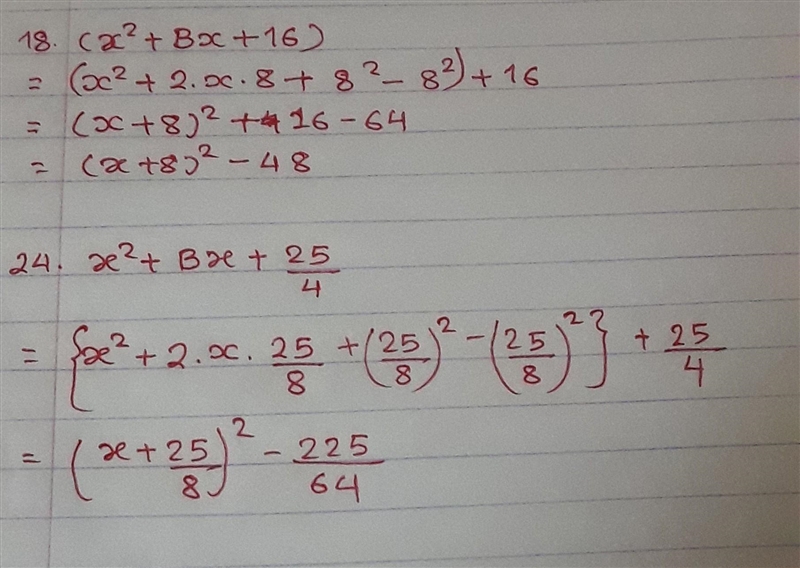 18. (x² + Bx + 16)
= (x² + 2.x.8 + 8² - 8²) + 16
= (x + 8)² + 16 - 64
= (x + 8)² - 48
24. x² + Bx + 25/4
= {x² + 2.x. 25/8 + (25/8)² - (25/8)²} + 25/4
= (x + 25/8)² - 225/64